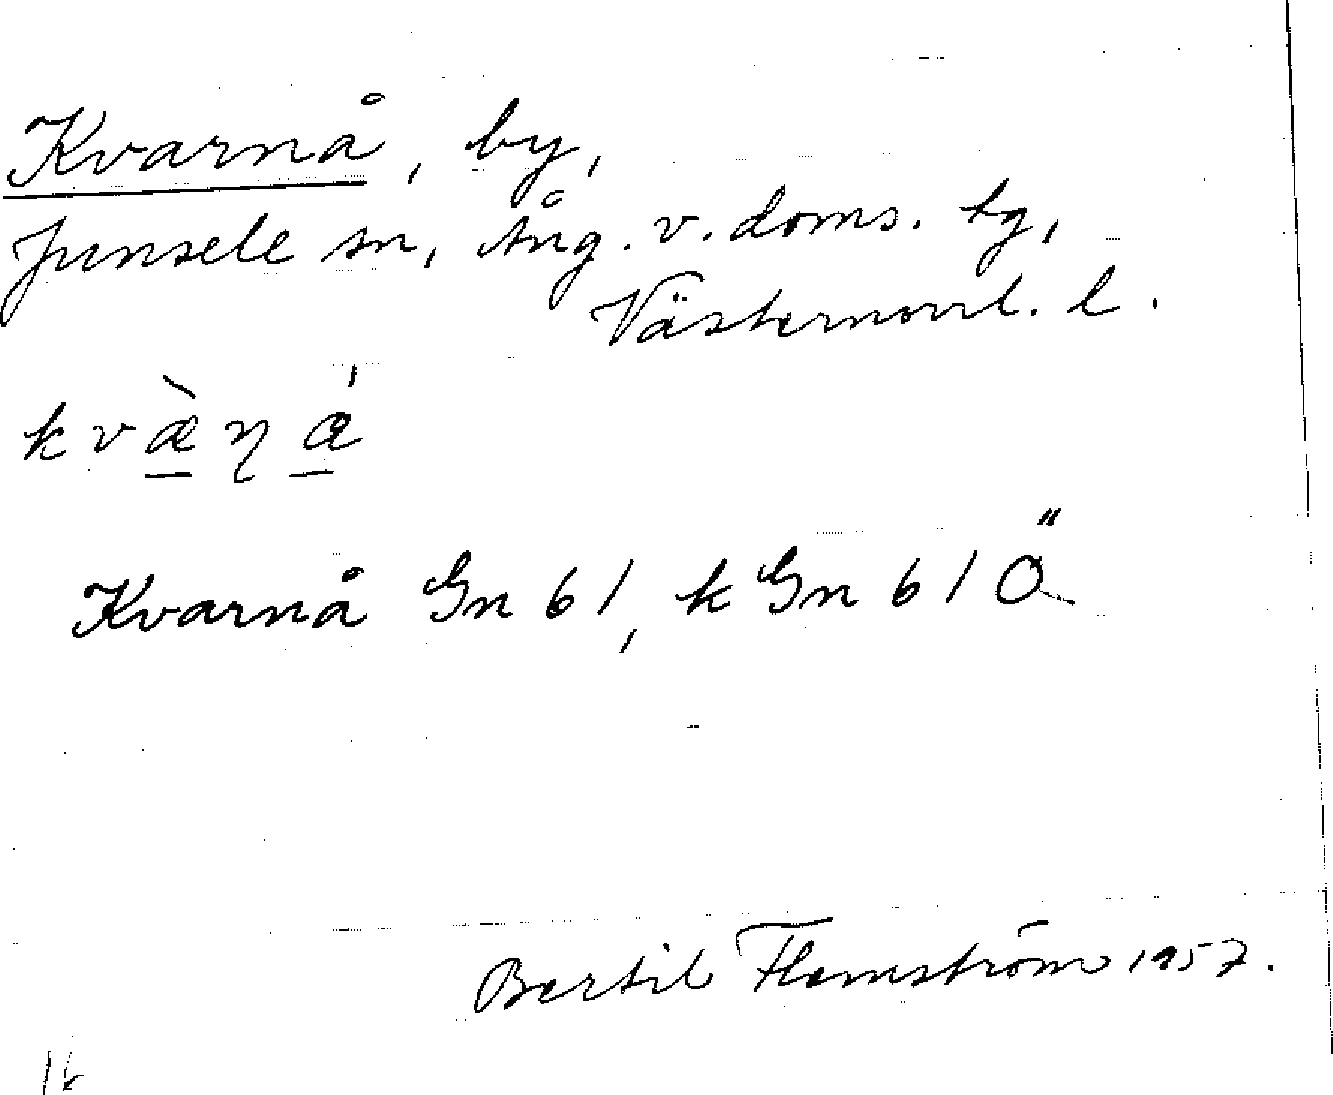 Kvarnå, by,
Junsele sn, Ång. v. doms. tg,
Västernorrl. l.
kvæ̀ηǽ
Kvarnå Gn 61, k Gn 61 Ö
Bertil Flemström 1957.